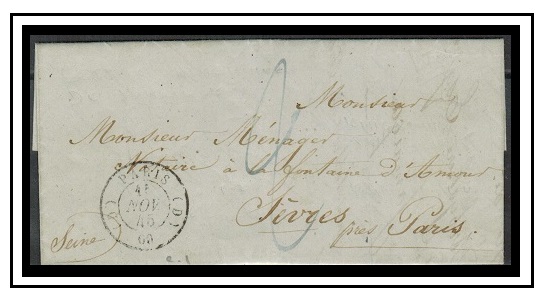 Monsieur
Monsieur Ménager
Notaire à la fontaine d'Amour
Sèvres
près Paris.
Seine
PARIS
NOV
45
(60)
(D)
2